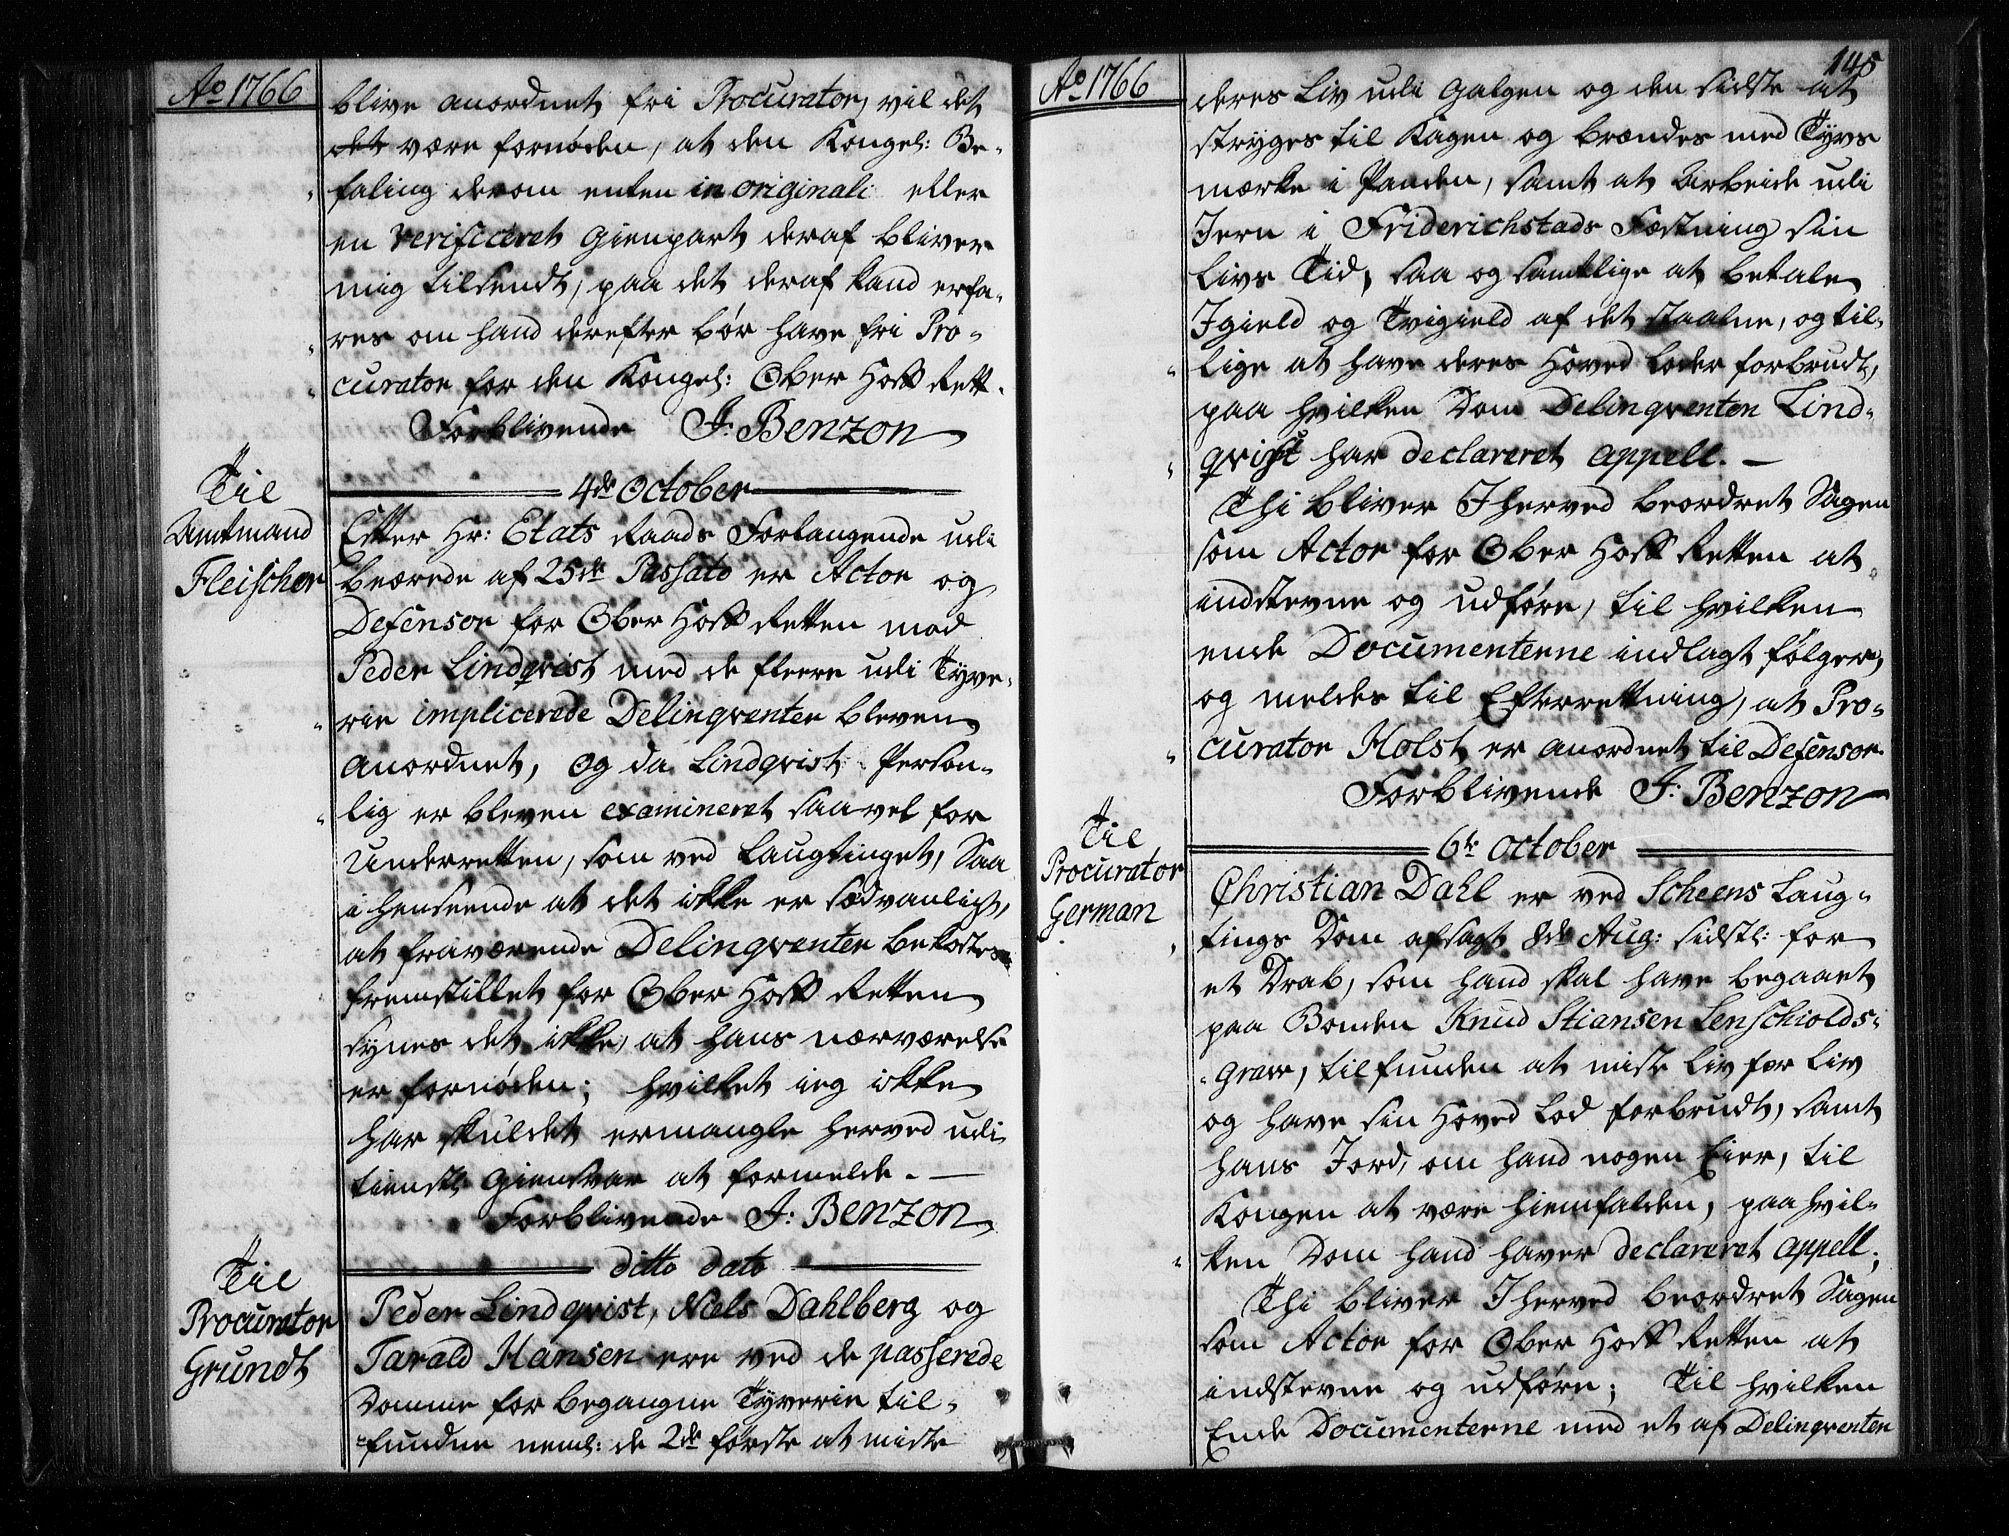 Ao 1766
blive anordnet fri Procurator, vil det
det være fornöden, at den Kongel: Be-
faling derom enten in originali eller
en verificeret Gienpart deraf bliver
mig tilsendt, paa det deraf kand erfa-
res om hand derefter bör have fri Pro-
curator for den Kongel: Ober Hoff Rett.
Forblivende J: Benzon
4de October
Til
Amtmand
Fleischer
Efter Hr: Etats Raads Forlangende udi
beærede af 25de Passato er Actor og
Defensor for Ober Hoff Retten mod
Peder Lindqvist med de fleere udi Tyve-
rie implicerede Delinqventer bleven
anordnet, og da Lindqvist Person-
lig er bleven examineret saavel for
Underretten, som ved Laugtinget, Saa
i henseende at det ikke er sædvanligt,
at fraværende Delinqventer bekostes
fremstillet for Ober Hoff Retten
synes det ikke, at hans nærværelse
er fornöden; hvilket ieg ikke
har skuldet ermangle herved udi
tienstl: Giensvar at formelde.
Forblivende J: Benzon
ditto dato
Til
Procurator
Grundt
Peder Lindqvist, Niels Dahlberg og
Tarald Hansen ere ved de passerede
Domme for begangne Tyverie til-
fundne neml: de 2de förste at miste
Ao 1766
145
deres Liv udi Galgen og den sidste at
stryges til Kagen og brændes med Tyvs
mærke i Panden, samt at Arbeide udi
Jern i Friderichstads Fæstning sin
Livs Tid, saa og samtlige at betale
Igield og Tvigield af det stiaalne, og til-
lige at have deres Hoved Loder forbrudt,
paa hvilken Dom Delinqventen Lind-
qvist har declareret appell.
Thi bliver I herved beordret Sagen
som Actor for Ober Hoff Retten at
indstevne og udföre, til hvilken
ende Documenterne indlagt fölger,
og meldes til Efterrettning, at Pro-
curator Holst er anordnet til Defensor
Forblivende J: Benzon
6te October
Til
Procurator
German
Christian Dahl er ved Scheens Laug-
tings Dom afsagt 8de Aug: sidstl: for
et Drab, som hand skal have begaaet
paa Bonden Knud Stiansen Lenschiolds-
Grav, tilfunden at miste Liv for Liv
og have sin Hoved Lod forbrudt, samt
hans Jord, om hand nogen Eier, til
Kongen at være hiemfalden, paa hvil-
ken Dom hand haver declareret appell;
Thi bliver I herved beordret Sagen
som Actor for Ober Hoff Retten at
indstevne og udföre; Til hvilken
Ende Documenterne med et af Delinqventen